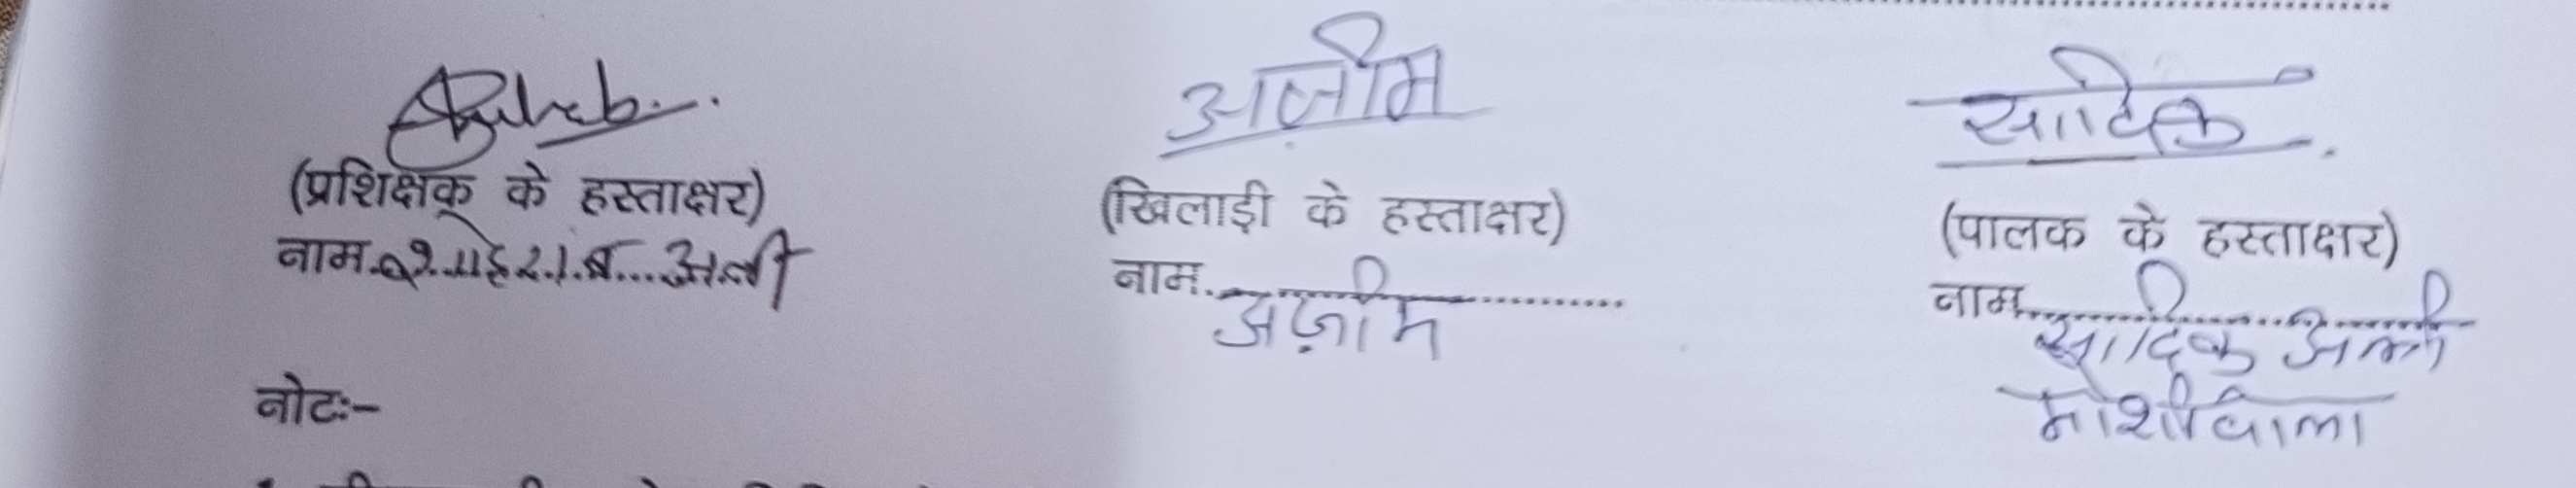 अज़ीम
सादिक
(प्रशिक्षक के हस्ताक्षर)
(खिलाड़ी के हस्ताक्षर)
(पालक के हस्ताक्षर)
नाम. अली
नाम. अज़ीम
नाम. सादिक अली
नोटः-